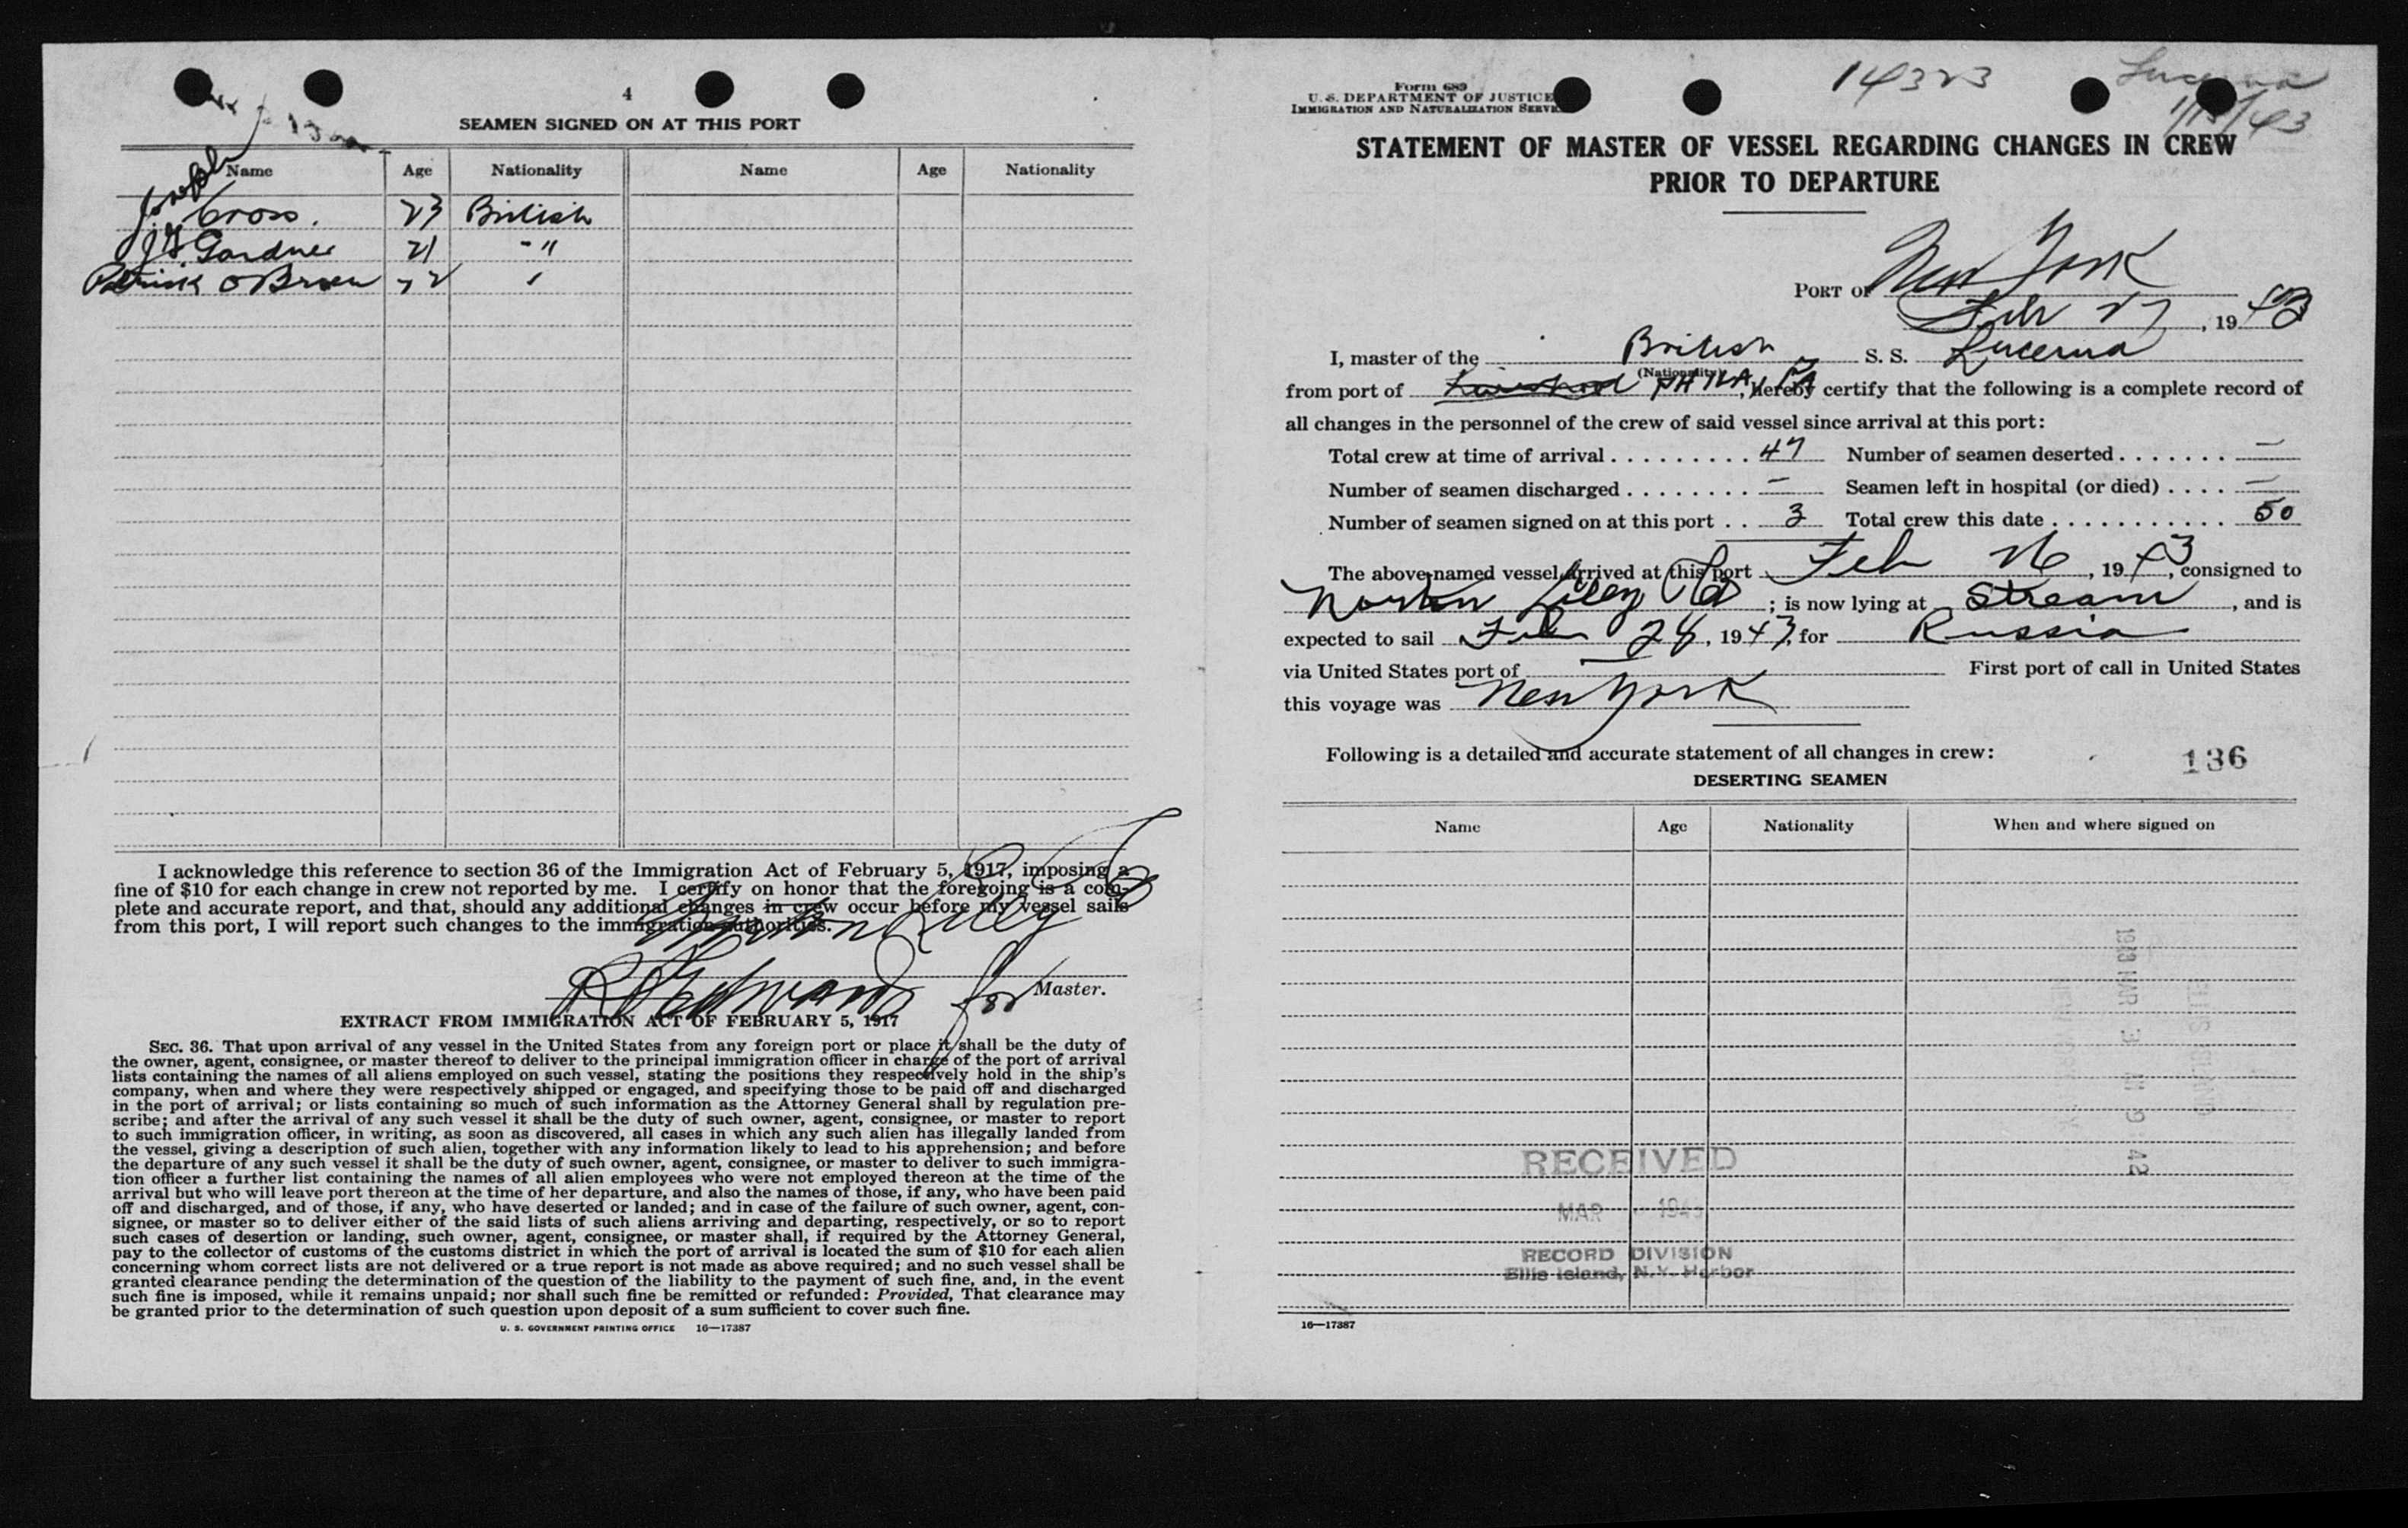 4
SEAMEN SIGNED ON AT THIS PORT
Name Age Nationality Name Age Nationality
Joseph
Cross. 23 British
J. Gardner 21 - "
Patrick O Brien 22 "
I acknowledge this reference to section 36 of the Immigration Act of February 5, 1917, imposing a
fine of $10 for each change in crew not reported by me. I certify on honor that the foregoing is a com-
plete and accurate report, and that, should any additional changes in crew occur before my vessel sails
from this port, I will report such changes to the immigration authorities.
Norton Lilly Co
for Master.
EXTRACT FROM IMMIGRATION ACT OF FEBRUARY 5, 1917
SEC. 36. That upon arrival of any vessel in the United States from any foreign port or place it shall be the duty of
the owner, agent, consignee, or master thereof to deliver to the principal immigration officer in charge of the port of arrival
lists containing the names of all aliens employed on such vessel, stating the positions they respectively hold in the ship's
company, when and where they were respectively shipped or engaged, and specifying those to be paid off and discharged
in the port of arrival; or lists containing so much of such information as the Attorney General shall by regulation pre-
scribe; and after the arrival of any such vessel it shall be the duty of such owner, agent, consignee, or master to report
to such immigration officer, in writing, as soon as discovered, all cases in which any such alien has illegally landed from
the vessel, giving a description of such alien, together with any information likely to lead to his apprehension; and before
the departure of any such vessel it shall be the duty of such owner, agent, consignee, or master to deliver to such immigra-
tion officer a further list containing the names of all alien employees who were not employed thereon at the time of the
arrival but who will leave port thereon at the time of her departure, and also the names of those, if any, who have been paid
off and discharged, and of those, if any, who have deserted or landed; and in case of the failure of such owner, agent, con-
signee, or master so to deliver either of the said lists of such aliens arriving and departing, respectively, or so to report
such cases of desertion or landing, such owner, agent, consignee, or master shall, if required by the Attorney General,
pay to the collector of customs of the customs district in which the port of arrival is located the sum of $10 for each alien
concerning whom correct lists are not delivered or a true report is not made as above required; and no such vessel shall be
granted clearance pending the determination of the question of the liability to the payment of such fine, and, in the event
such fine is imposed, while it remains unpaid; nor shall such fine be remitted or refunded: Provided, That clearance may
be granted prior to the determination of such question upon deposit of a sum sufficient to cover such fine.
U. S. GOVERNMENT PRINTING OFFICE 16—17387
Form 689
U. S. DEPARTMENT OF JUSTICE
IMMIGRATION AND NATURALIZATION SERVICE
14323
Lucerna
1/15/43
STATEMENT OF MASTER OF VESSEL REGARDING CHANGES IN CREW
PRIOR TO DEPARTURE
PORT OF New York
Feb 27, 1943
I, master of the British S. S. Lucerna
(Nationality)
from port of PHILA, PA, hereby certify that the following is a complete record of
all changes in the personnel of the crew of said vessel since arrival at this port:
Total crew at time of arrival . . . . . . . . . 47 Number of seamen deserted . . . . . . . —
Number of seamen discharged . . . . . . . . — Seamen left in hospital (or died) . . . . —
Number of seamen signed on at this port . . 3 Total crew this date . . . . . . . . . . . . 50
The above-named vessel arrived at this port Feb 26, 1943, consigned to
Norton Lilly Co; is now lying at Stream, and is
expected to sail Feb 28, 1943, for Russia
via United States port of — First port of call in United States
this voyage was New York
Following is a detailed and accurate statement of all changes in crew:
136
DESERTING SEAMEN
Name Age Nationality When and where signed on
1943 MAR 3 AM 9 42
ELLIS ISLAND
RECEIVED
MAR 1943
RECORD DIVISION
Ellis Island, N.Y. Harbor
16—17387